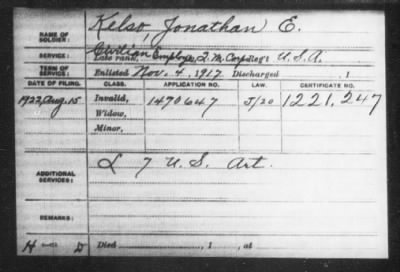 NAME OF SOLDIER: Kelso, Jonathan E.
SERVICE: Civilian Employe, Q.M. Corps
Late rank, Reg't U.S.A.
TERM OF SERVICE: Enlisted Nov. 4, 1917 Discharged , 1
DATE OF FILING. CLASS. APPLICATION NO. LAW. CERTIFICATE NO.
1922, Aug. 15 Invalid, 1470647 J/20 1221,247
Widow,
Minor,
ADDITIONAL SERVICES: L 7 U.S. Art.
REMARKS:
Died , 1 , at